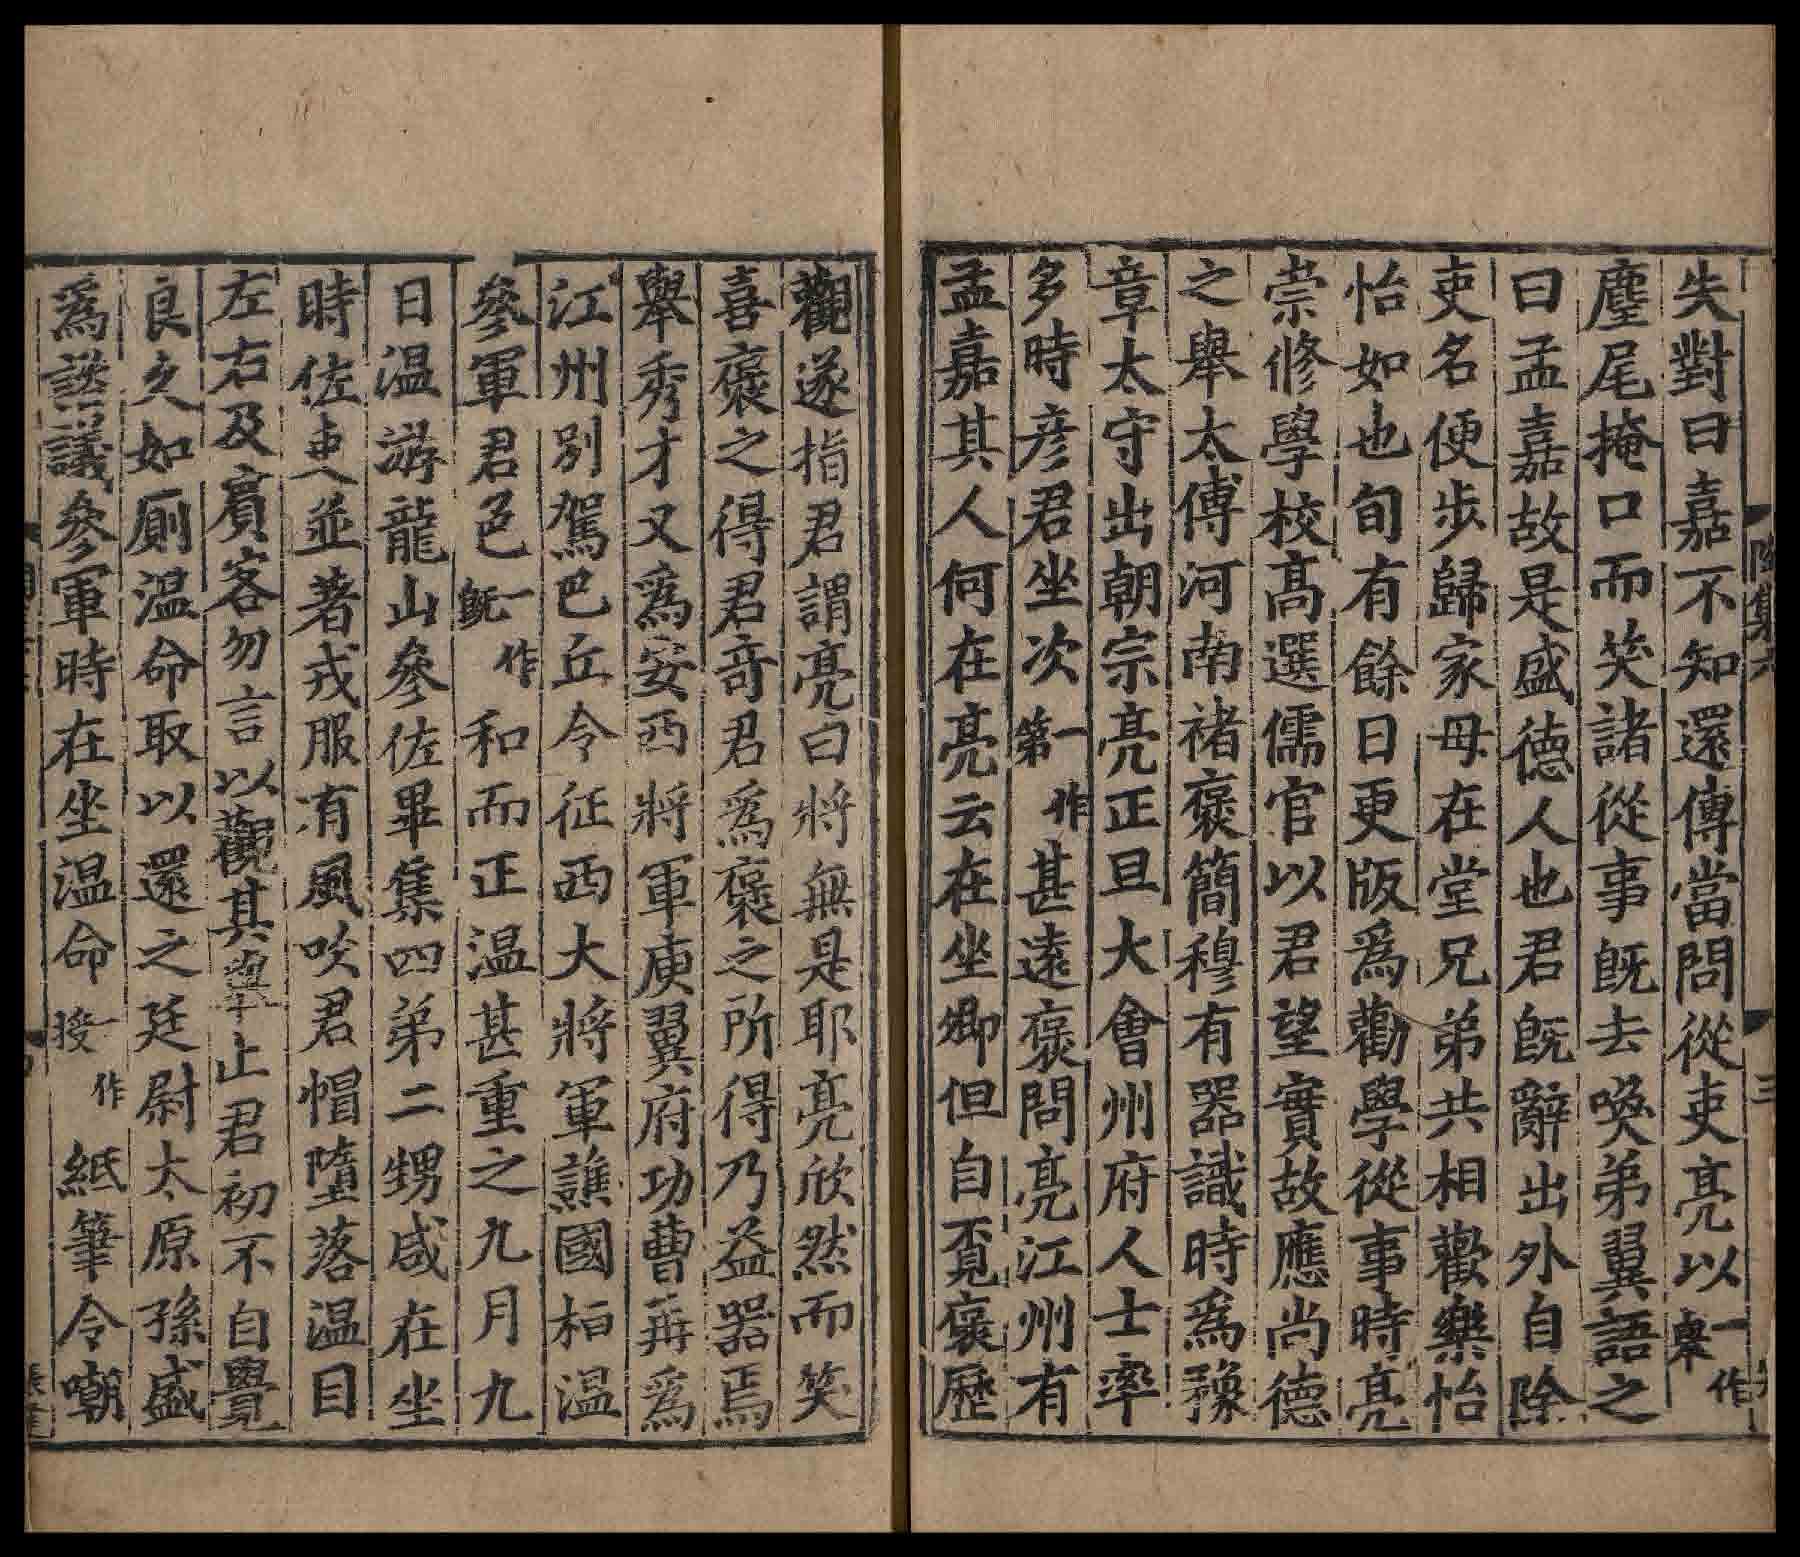 失對曰嘉不知還傳當問從吏亮以一作舉
麈尾掩口而笑諸從事旣去喚弟翼語之
曰孟嘉故是盛德人也君旣辭出外自除
吏名便步歸家母在堂兄弟共相歡樂怡
怡如也旬有餘日更版爲勸學從事時亮
崇修學校髙選儒官以君望實故應尚德
之舉太傅河南褚裒簡穆有器識時爲豫
章太守出朝宗亮正旦大會州府人士率
多時彦君坐次一作第甚遠裒問亮江州有
孟嘉其人何在亮云在坐卿但自覓裒歷
觀遂指君謂亮曰將無是耶亮欣然而笑
喜裒之得君竒君爲裒之所得乃益器焉
舉秀才又爲安西將軍庾翼府功曹再爲
江州別駕巴丘令征西大將軍譙國桓温
參軍君色一作旣和而正温甚重之九月九
日温游龍山參佐畢集四弟二甥咸在坐
時佐吏並著戎服有風吹君帽墮落温目
左右及賔客勿言以觀其舉止君初不自覺
良久如厠温命取以還之廷尉太原孫盛
爲諮議參軍時在坐温命一作授紙筆令嘲